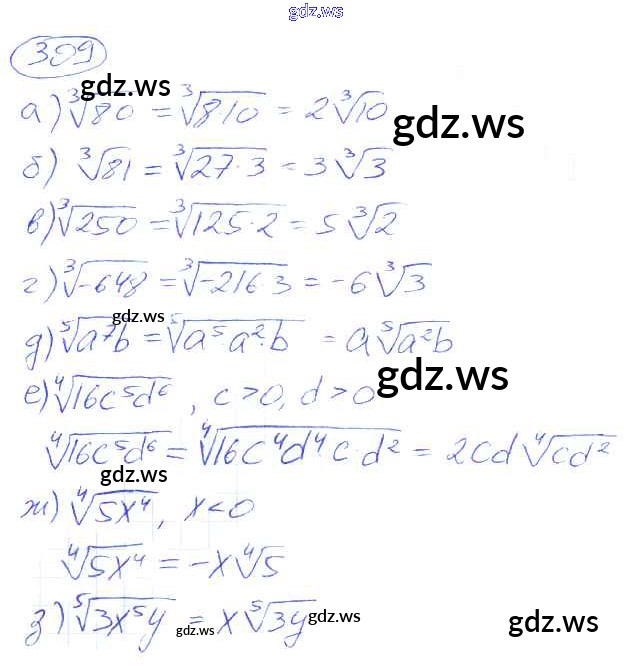 gdz.ws
309
gdz.ws
а) ∛80 = ∛8·10 = 2∛10
gdz.ws
б) ∛81 = ∛27·3 = 3∛3
в) ∛250 = ∛125·2 = 5∛2
г) ∛-648 = ∛-216·3 = -6∛3
gdz.ws
д) ⁵√a⁷b = ⁵√a⁵a²·b = a⁵√a²b
gdz.ws
е) ∜16c⁵d⁶, c>0, d>0
∜16c⁵d⁶ = ∜16c⁴d⁴c·d² = 2cd∜cd²
gdz.ws
ж) ∜5x⁴, x<0
∜5x⁴ = -x∜5
з) ⁵√3x⁵y = x⁵√3y
gdz.ws
gdz.ws
gdz.ws